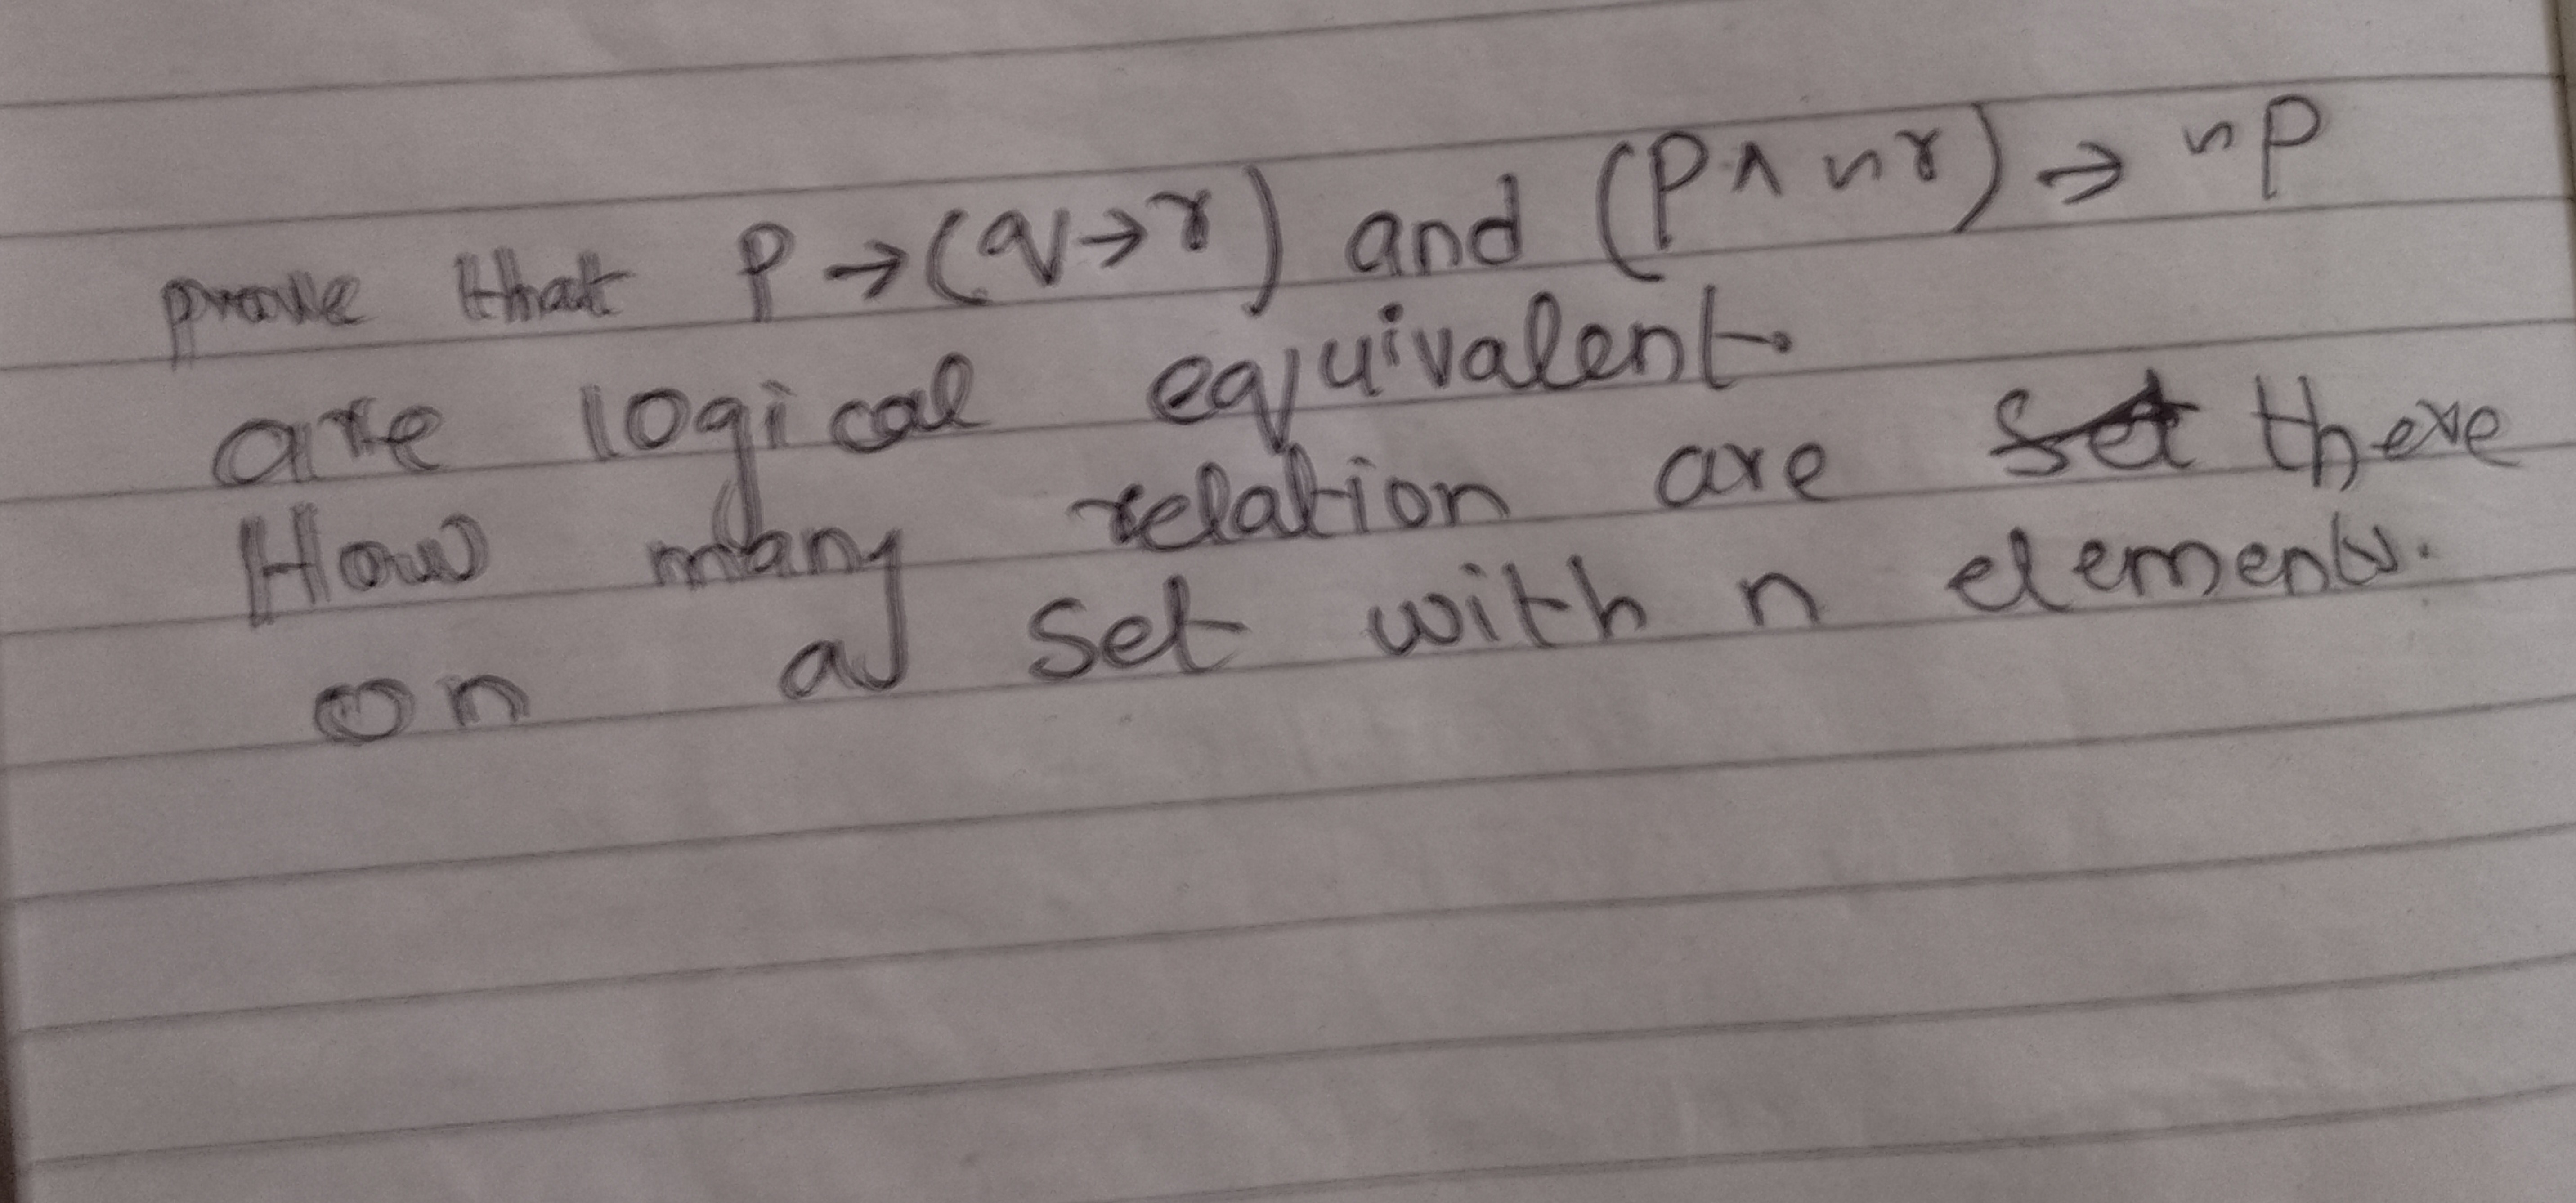 prove that P → (q → r) and (P ∧ ~r) → ~P
are logical equivalent.
How many relation are there
on a set with n elements.